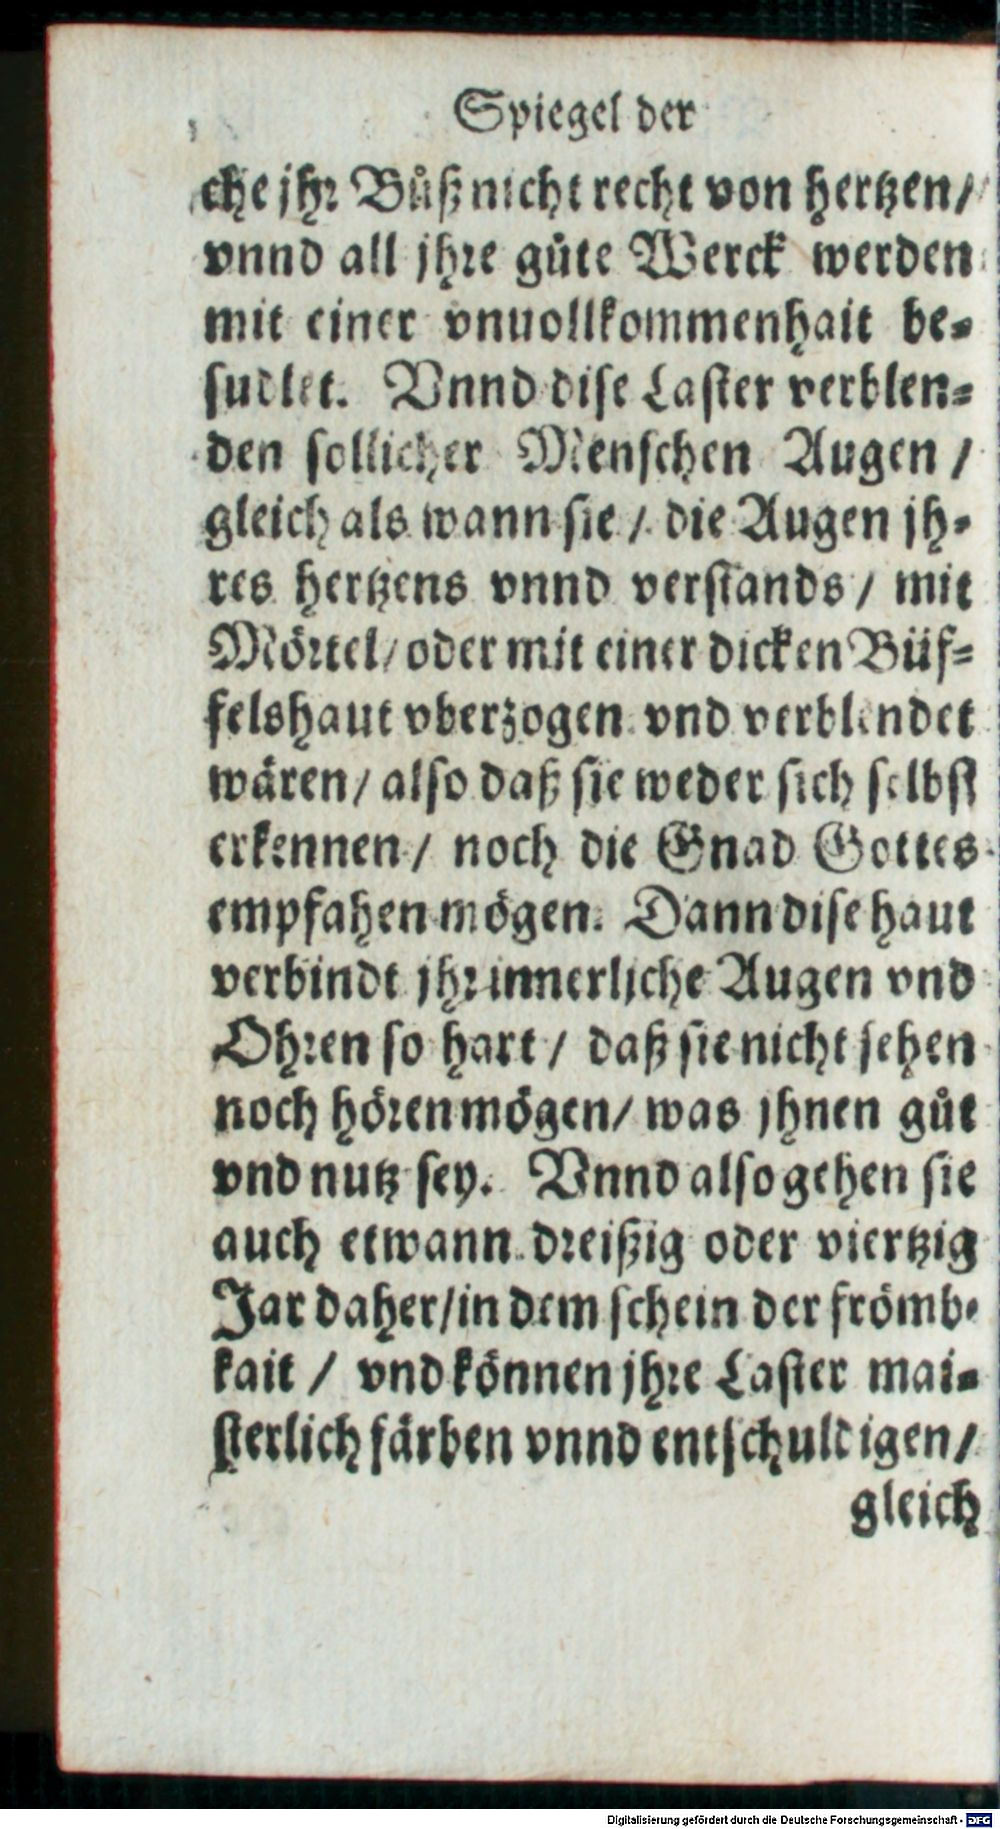 Spiegel der
che jhr Bůß nicht recht von hertzen/
vnnd all jhre gůte Werck werden
mit einer vnuollkommenhait be-
sudlet. Vnnd dise Laster verblen-
den sollicher Menschen Augen /
gleich als wann sie / die Augen jh-
res hertzens vnnd verstands / mit
Mörtel/ oder mit einer dicken Büf-
felshaut vberzogen vnd verblendet
wären/ also daß sie weder sich selbst
erkennen / noch die Gnad Gottes
empfahen mögen. Dann dise haut
verbindt jhr innerliche Augen vnd
Ohren so hart / daß sie nicht sehen
noch hören mögen/ was jhnen gůt
vnd nutz sey. Vnnd also gehen sie
auch etwann dreißig oder viertzig
Jar daher/ in dem schein der frömb-
kait / vnd können jhre Laster mai-
sterlich färben vnnd entschuldigen/
gleich
Digitalisierung gefördert durch die Deutsche Forschungsgemeinschaft - DFG